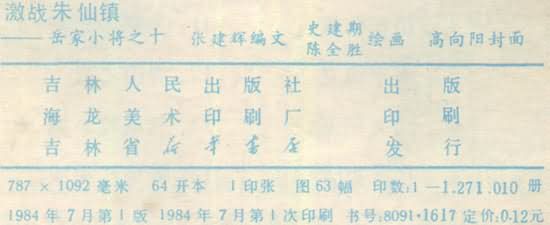 激战朱仙镇
——岳家小将之十 张建辉编文 史建期 陈全胜 绘画 高向阳封面
吉林人民出版社 出版
海龙美术印刷厂 印刷
吉林省新华书店 发行
787×1092毫米 64开本 1印张 图63幅 印数:1—1.271.010册
1984年7月第1版 1984年7月第1次印刷 书号:8091·1617 定价:0.12元